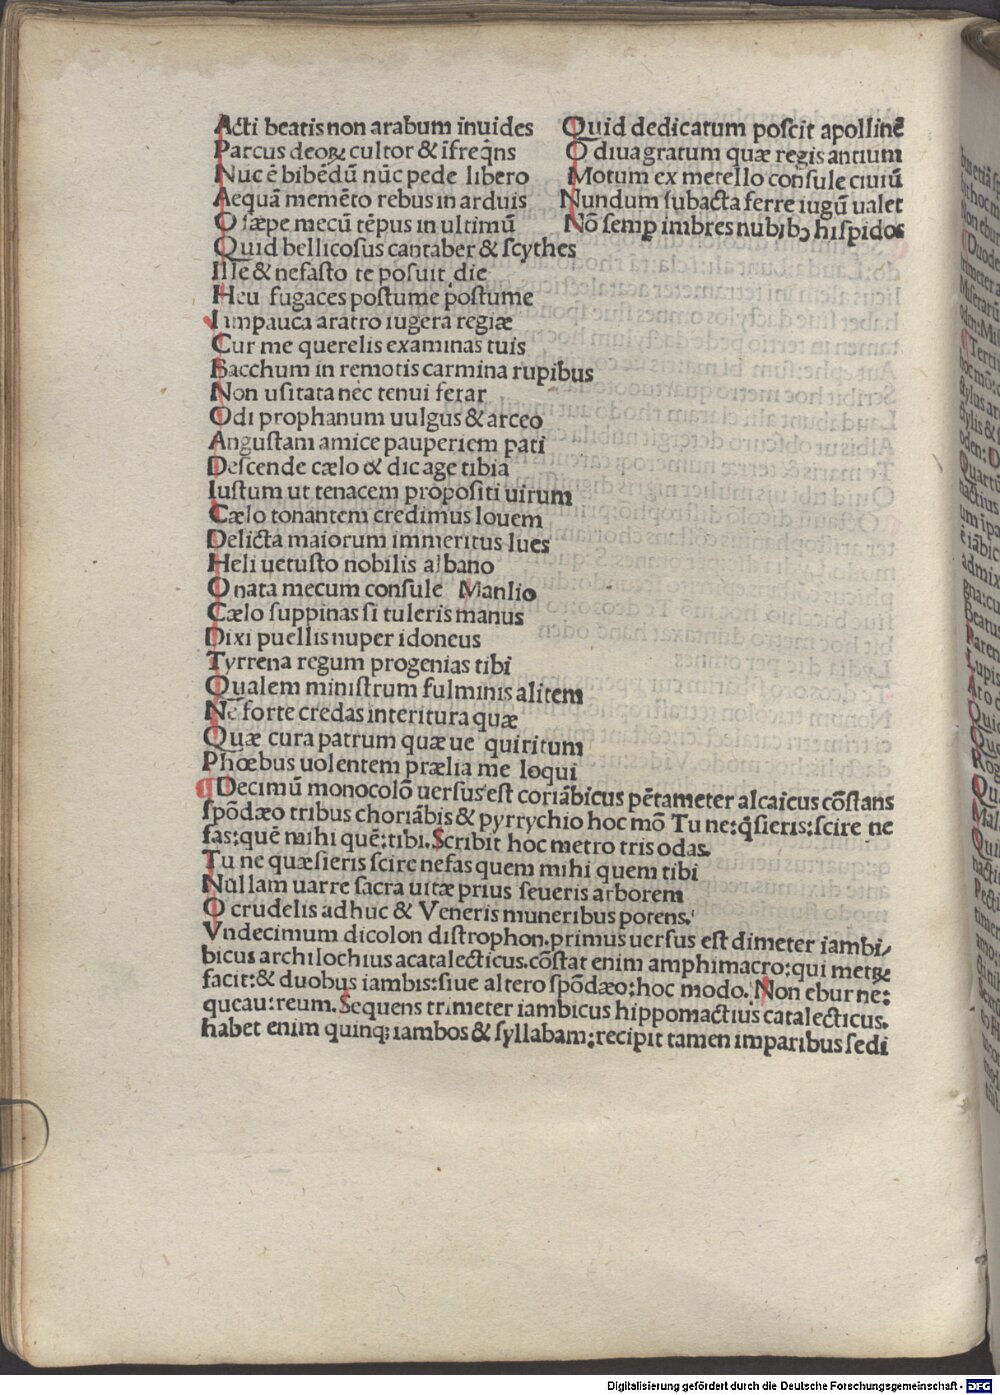 Acti beatis non arabum inuides
Parcus deoꝝ cultor & ĩfreq̃ns
Nuc ē bibēdū nūc pede libero
Aequã memēto rebus in arduis
O ſæpe mecū tēpus in ultimū
Quid bellicoſus cantaber & ſcythes
Ille & nefaſto te poſuit die
Heu fugaces poſtume poſtume
Iam pauca aratro iugera regiæ
Cur me querelis examinas tuis
Bacchum in remotis carmina rupibus
Non uſitata nec tenui ferar
Odi prophanum uulgus & arceo
Anguſtam amice pauperiem pati
Deſcende cælo & dic age tibia
Iuſtum ut tenacem propoſiti uirum
Cælo tonantem credimus Iouem
Delicta maiorum immeritus lues
Heli uetuſto nobilis albano
O nata mecum conſule Manlio
Cælo ſuppinas ſi tuleris manus
Dixi puellis nuper idoneus
Tyrrena regum progenias tibi
Qualem miniſtrum fulminis alitem
Ne forte credas interitura quæ
Quæ cura patrum quæ ue quiritum
Phœbus uolentem prælia me loqui
Quid dedicatum poſcit apollinē
O diua gratum quæ regis antium
Motum ex metello conſule ciuiū
Nundum ſubacta ferre iugū ualet
Nō ſemꝑ imbres nubibꝫ hiſpidos
¶ Decimū monocolō uerſus eſt coriãbicus pētameter alcaicus cōſtans
ſpōdæo tribus choriãbis & pyrrychio hoc mō Tu ne: q̃ſieris: ſcire ne
fas: quē mihi quē: tibi. Scribit hoc metro tris odas.
Tu ne quæſieris ſcire nefas quem mihi quem tibi
Nullam uarre ſacra uitæ prius ſeueris arborem
O crudelis adhuc & Veneris muneribus potens.
Vndecimum dicolon diſtrophon. primus uerſus eſt dimeter iambi/
bicus archilochius acatalecticus. cōſtat enim amphimacro: qui metꝝ
facit: & duobus iambis: ſiue altero ſpōdæo: hoc modo. Non ebur ne:
queau: reum. Sequens trimeter iambicus hippomactius catalecticus.
habet enim quinqꝫ iambos & ſyllabam: recipit tamen imparibus ſedi
Digitalisierung gefördert durch die Deutsche Forschungsgemeinschaft - DFG